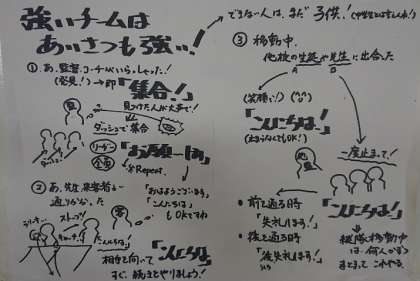 強いチームは
あいさつも強い!
できない人は、まだ子供!
① あ、監督、コーチがいらっしゃった!
(発見!) → 即「集合!」
見つけた人が大声で!
ダッシュで集合
全員
「お願いします」
※Repeat.
② あ、先生、来客者が
通りがかった
「おはようございます」
「こんにちは」
もOKですね
ストップ!
「こんにちは!」
「こんにちは」
相手を向いて
すぐ、続きをやりましょう!
③ 移動中、
他校の生徒や先生に出会った
A
B
(笑顔で!) (^o^)
「こんにちは!」
(止まらなくてもOK!)
一度止まって!
「こんにちは!」
• 前を通る時
「失礼します!」
• 後を通る時
「後失礼します!」
縦隊移動中
は、何人かで
まとまって これやる。